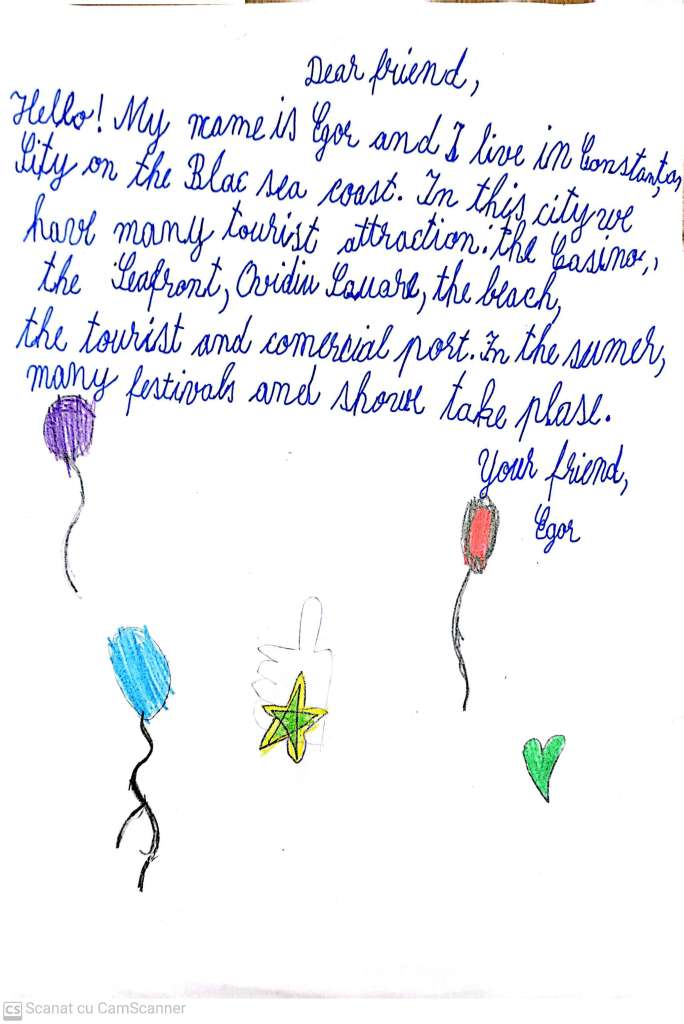 Dear friend,
Hello! My name is Egor and I live in Constanța,
City on the Blac sea coast. In this city we
have many tourist attraction: the Casino,
the Seafront, Ovidiu Square, the beach,
the tourist and comercial port. In the sumer,
many festivals and show take plase.
Your friend,
Egor
CS Scanat cu CamScanner